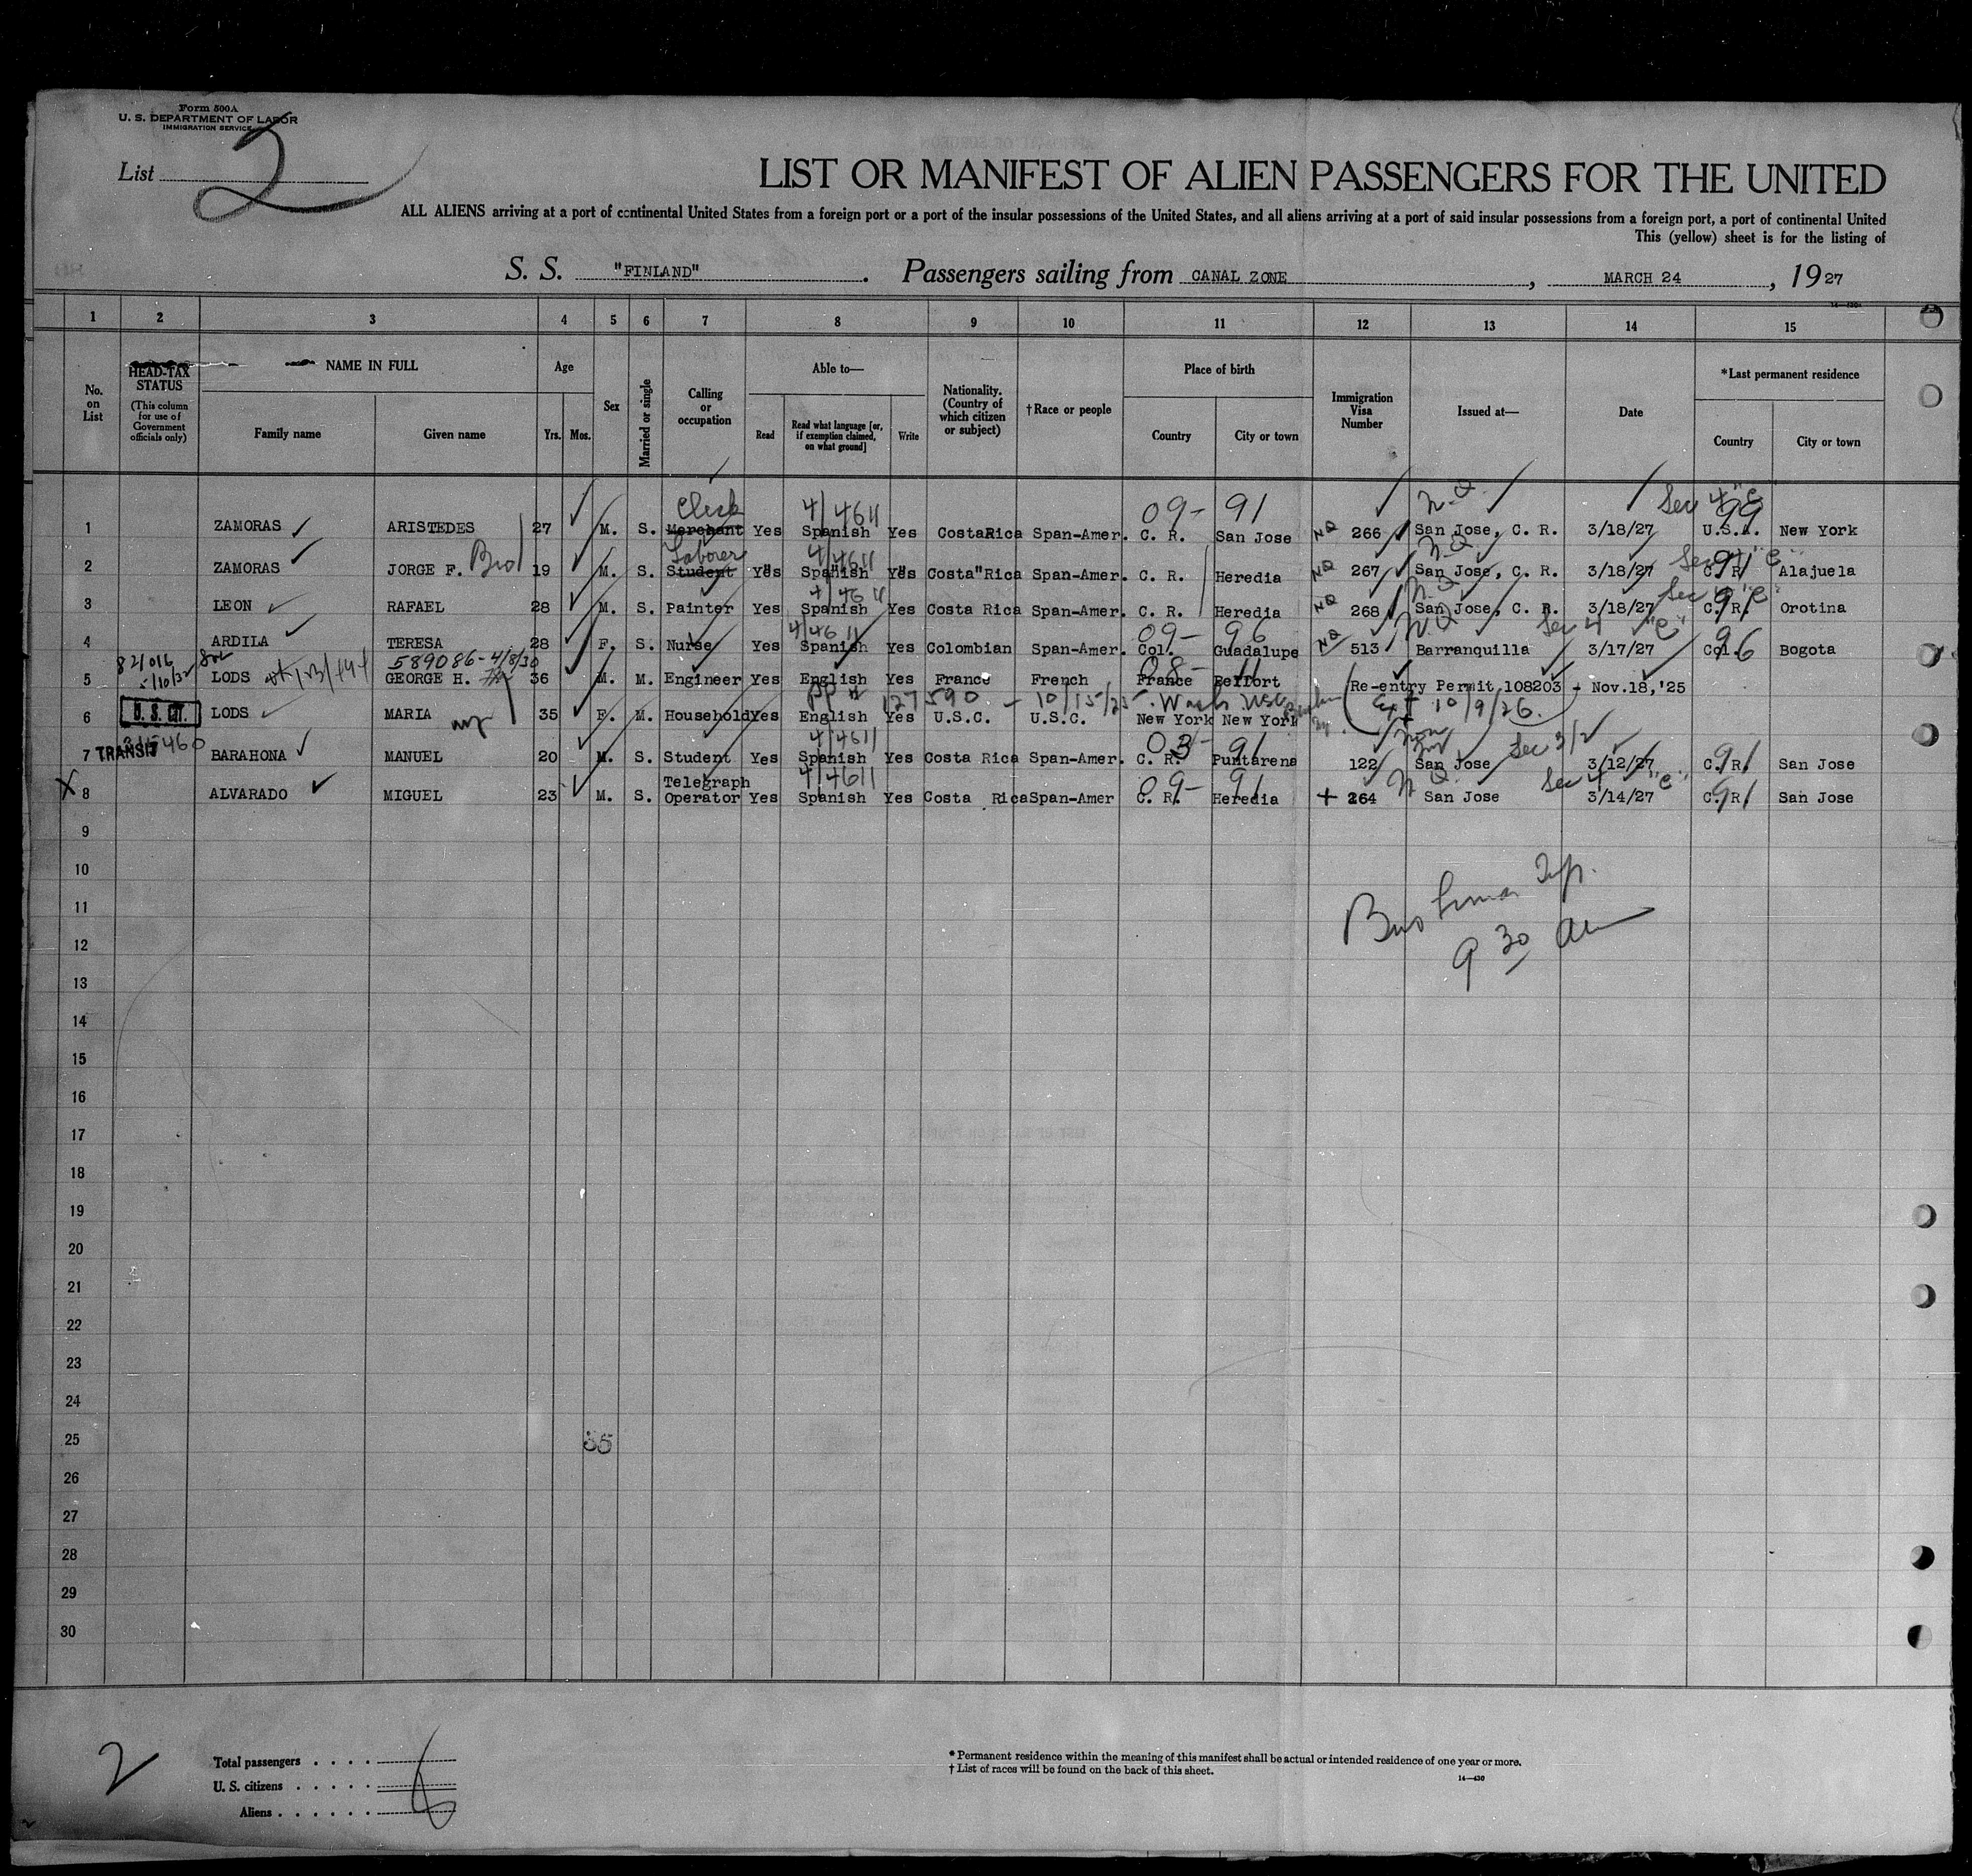 Form 500A
U. S. DEPARTMENT OF LABOR
IMMIGRATION SERVICE
List 2
LIST OR MANIFEST OF ALIEN PASSENGERS FOR THE UNITED
ALL ALIENS arriving at a port of continental United States from a foreign port or a port of the insular possessions of the United States, and all aliens arriving at a port of said insular possessions from a foreign port, a port of continental United
This (yellow) sheet is for the listing of
S. S. "FINLAND". Passengers sailing from CANAL ZONE, MARCH 24, 1927
1 2 3 4 5 6 7 8 9 10 11 12 13 14 15
No. on List
HEAD-TAX STATUS (This column for use of Government officials only)
NAME IN FULL
Family name Given name
Age
Yrs. Mos.
Sex
Married or single
Calling or occupation
Able to—
Read Read what language [or, if exemption claimed, on what ground] Write
Nationality. (Country of which citizen or subject)
†Race or people
Place of birth
Country City or town
Immigration Visa Number
Issued at—
Date
*Last permanent residence
Country City or town
Clerk 4/4611 09- 91 N.Q. Sec 4 "C" 99
1 ZAMORAS ARISTEDES 27 M. S. Merchant Yes Spanish Yes CostaRica Span-Amer. C. R. San Jose NQ 266 San Jose, C. R. 3/18/27 U.S.A. New York
Laborer 4/4611 N.Q. Sec 4 "C" 91
2 ZAMORAS JORGE F. Bro 19 M. S. Student Yes Spanish Yes Costa"Rica Span-Amer. C. R. Heredia NQ 267 San Jose, C. R. 3/18/27 C. R. Alajuela
4/4611 N.Q. Sec 4 "C" 91
3 LEON RAFAEL 28 M. S. Painter Yes Spanish Yes Costa Rica Span-Amer. C. R. Heredia NQ 268 San Jose, C. R. 3/18/27 C. R. Orotina
4/4611 09- 96 N.Q. Sec 4 "C" 96
4 ARDILA TERESA 28 F. S. Nurse Yes Spanish Yes Colombian Span-Amer. Col. Guadalupe NQ 513 Barranquilla 3/17/27 Col. Bogota
82/016 5/10/32 589086-4/8/30 08- 11
5 LODS GEORGE H. 36 M. M. Engineer Yes English Yes France French France Belfort Re-entry Permit 108203 - Nov.18,'25
U. S. CIT. PP # 127590 - 10/15/25 Wash. Ext 10/9/26
6 LODS MARIA 35 F. M. Household Yes English Yes U.S.C. U.S.C. New York New York
TRANSIT 4/4611 03- 91 Non Sec 3/2 91
7 BARAHONA MANUEL 20 M. S. Student Yes Spanish Yes Costa Rica Span-Amer. C. R. Puntarena 122 San Jose 3/12/27 C. R. San Jose
4/4611 09- 91 N.Q. Sec 4 "C" 91
X 8 ALVARADO MIGUEL 23 M. S. Telegraph Operator Yes Spanish Yes Costa Rica Span-Amer C. R. Heredia + 264 San Jose 3/14/27 C. R. San Jose
9
10
11
12
13
14
15
16
17
18
19
20
21
22
23
24
25
26
27
28
29
30
9 30 AM
2
Total passengers
U. S. citizens
Aliens
* Permanent residence within the meaning of this manifest shall be actual or intended residence of one year or more.
† List of races will be found on the back of this sheet.
14—430